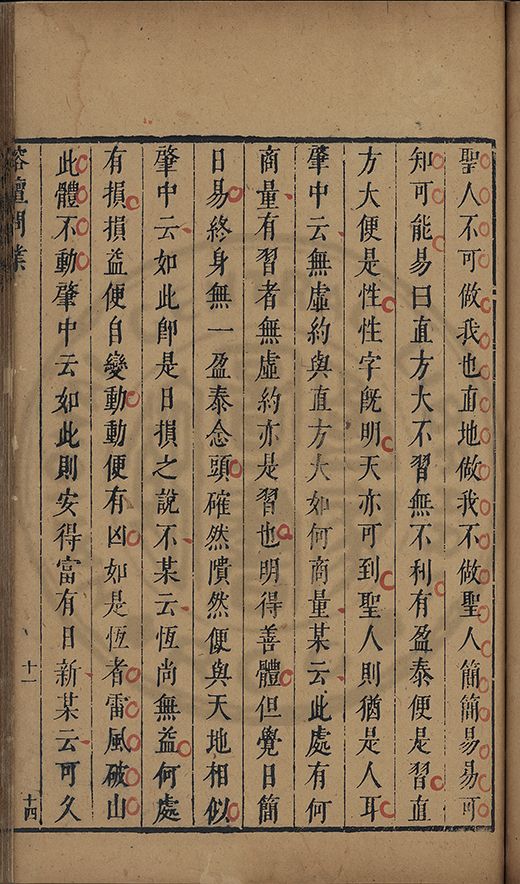 聖人不可做我也直地做我不做聖人簡簡易易可
知可能易曰直方大不習無不利有盈泰便是習直
方大便是性性字旣明天亦可到聖人則猶是人耳
肇中云無虛約與直方大如何商量某云此處有何
商量有習者無虛約亦是習也明得善體但覺日簡
日易終身無一盈泰念頭確然隤然便與天地相似
肇中云如此卽是日損之說不某云恆尚無益何處
有損損益便自變動動便有凶如是恆者雷風破山
此體不動肇中云如此則安得富有日新某云可久
榕壇問業
十一
十四